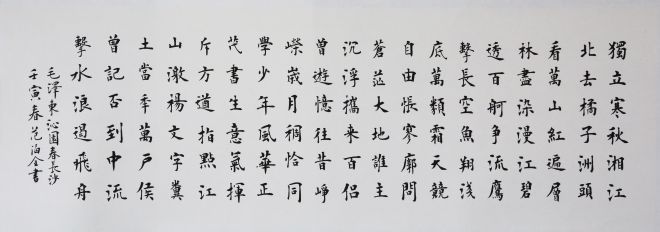 獨立寒秋湘江
北去橘子洲頭
看萬山紅遍層
林盡染漫江碧
透百舸争流鷹
擊長空魚翔淺
底萬類霜天競
自由悵寥廓問
蒼茫大地誰主
沉浮攜来百侶
曾遊憶往昔崢
嶸歲月稠恰同
學少年風華正
茂書生意氣揮
斥方遒指點江
山激揚文字糞
土當年萬戶侯
曾記否到中流
擊水浪遏飛舟
毛澤東沁園春長沙
壬寅春范泊全書